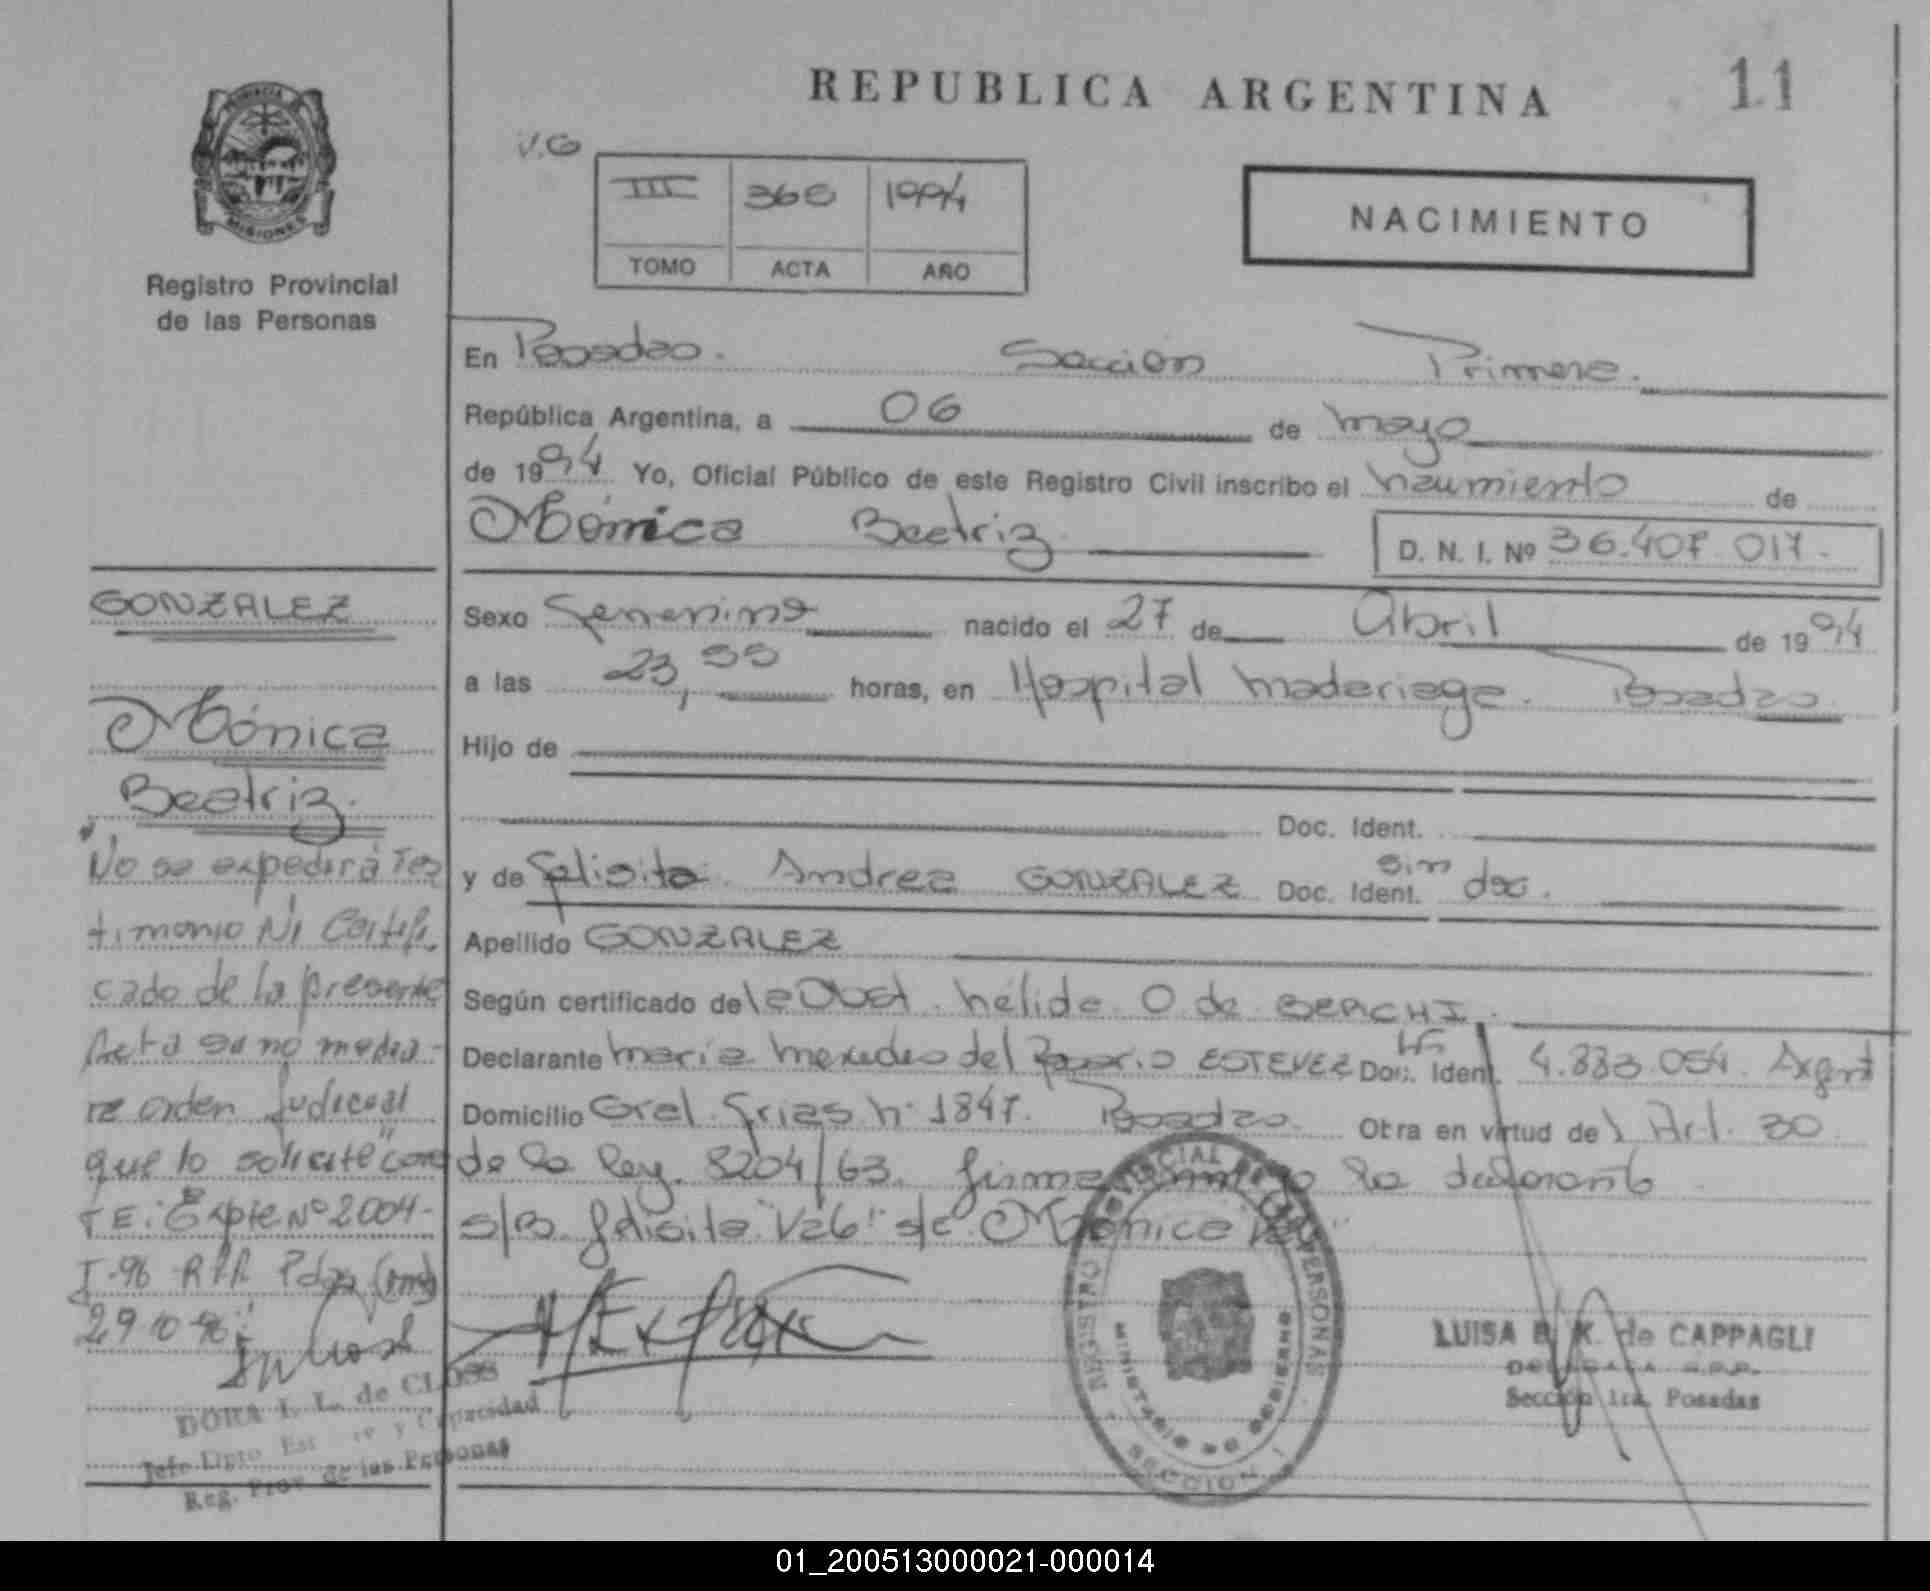 REPUBLICA ARGENTINA
11
PROVINCIA DE
MISIONES
Registro Provincial
de las Personas
V.G
III 366 1994
TOMO ACTA AÑO
NACIMIENTO
En Posadas. Sección Primera.
República Argentina, a 06 de mayo
de 1994 Yo, Oficial Público de este Registro Civil inscribo el nacimiento de
Mónica Beatriz D. N. I. Nº 36.407.017.
GONZALEZ
Mónica
Beatriz.
Sexo femenino nacido el 27 de Abril de 1994
a las 23,55 horas, en Hospital Madariaga. Posadas.
Hijo de
Doc. Ident.
y de Felisita Andrea GONZALEZ Doc. Ident. sin doc.
Apellido GONZALEZ
Según certificado de la Obst. Nélida O. de BERCHI.
Declarante María Mercedes del Rosario ESTEVEZ Doc. Ident. 4.883.054. Argent
Domicilio Gral. Frias Nº 1847. Posadas. Otra en virtud del Art. 30
de la ley 8204/63. firma la declarante
s/B. felisita "Vale" s/c. Mónica
"No se expedirá Tes
timonio Ni Certifi
cado de la presente
Acta si no media-
re orden Judicial
que lo solicite"
TE: Expte Nº 2004-
I-96 RPP Pdas
29-10-96
DORA I. L. de CLOSS
Jefe Dpto y Capacidad
Reg. Prov. de las Personas
REGISTRO PROVINCIAL DE LAS PERSONAS
MINISTERIO DE GOBIERNO
SECCION 1
LUISA B. K. de CAPPAGLI
DELEGADA R.P.P.
Sección 1ra. Posadas
01_200513000021-000014